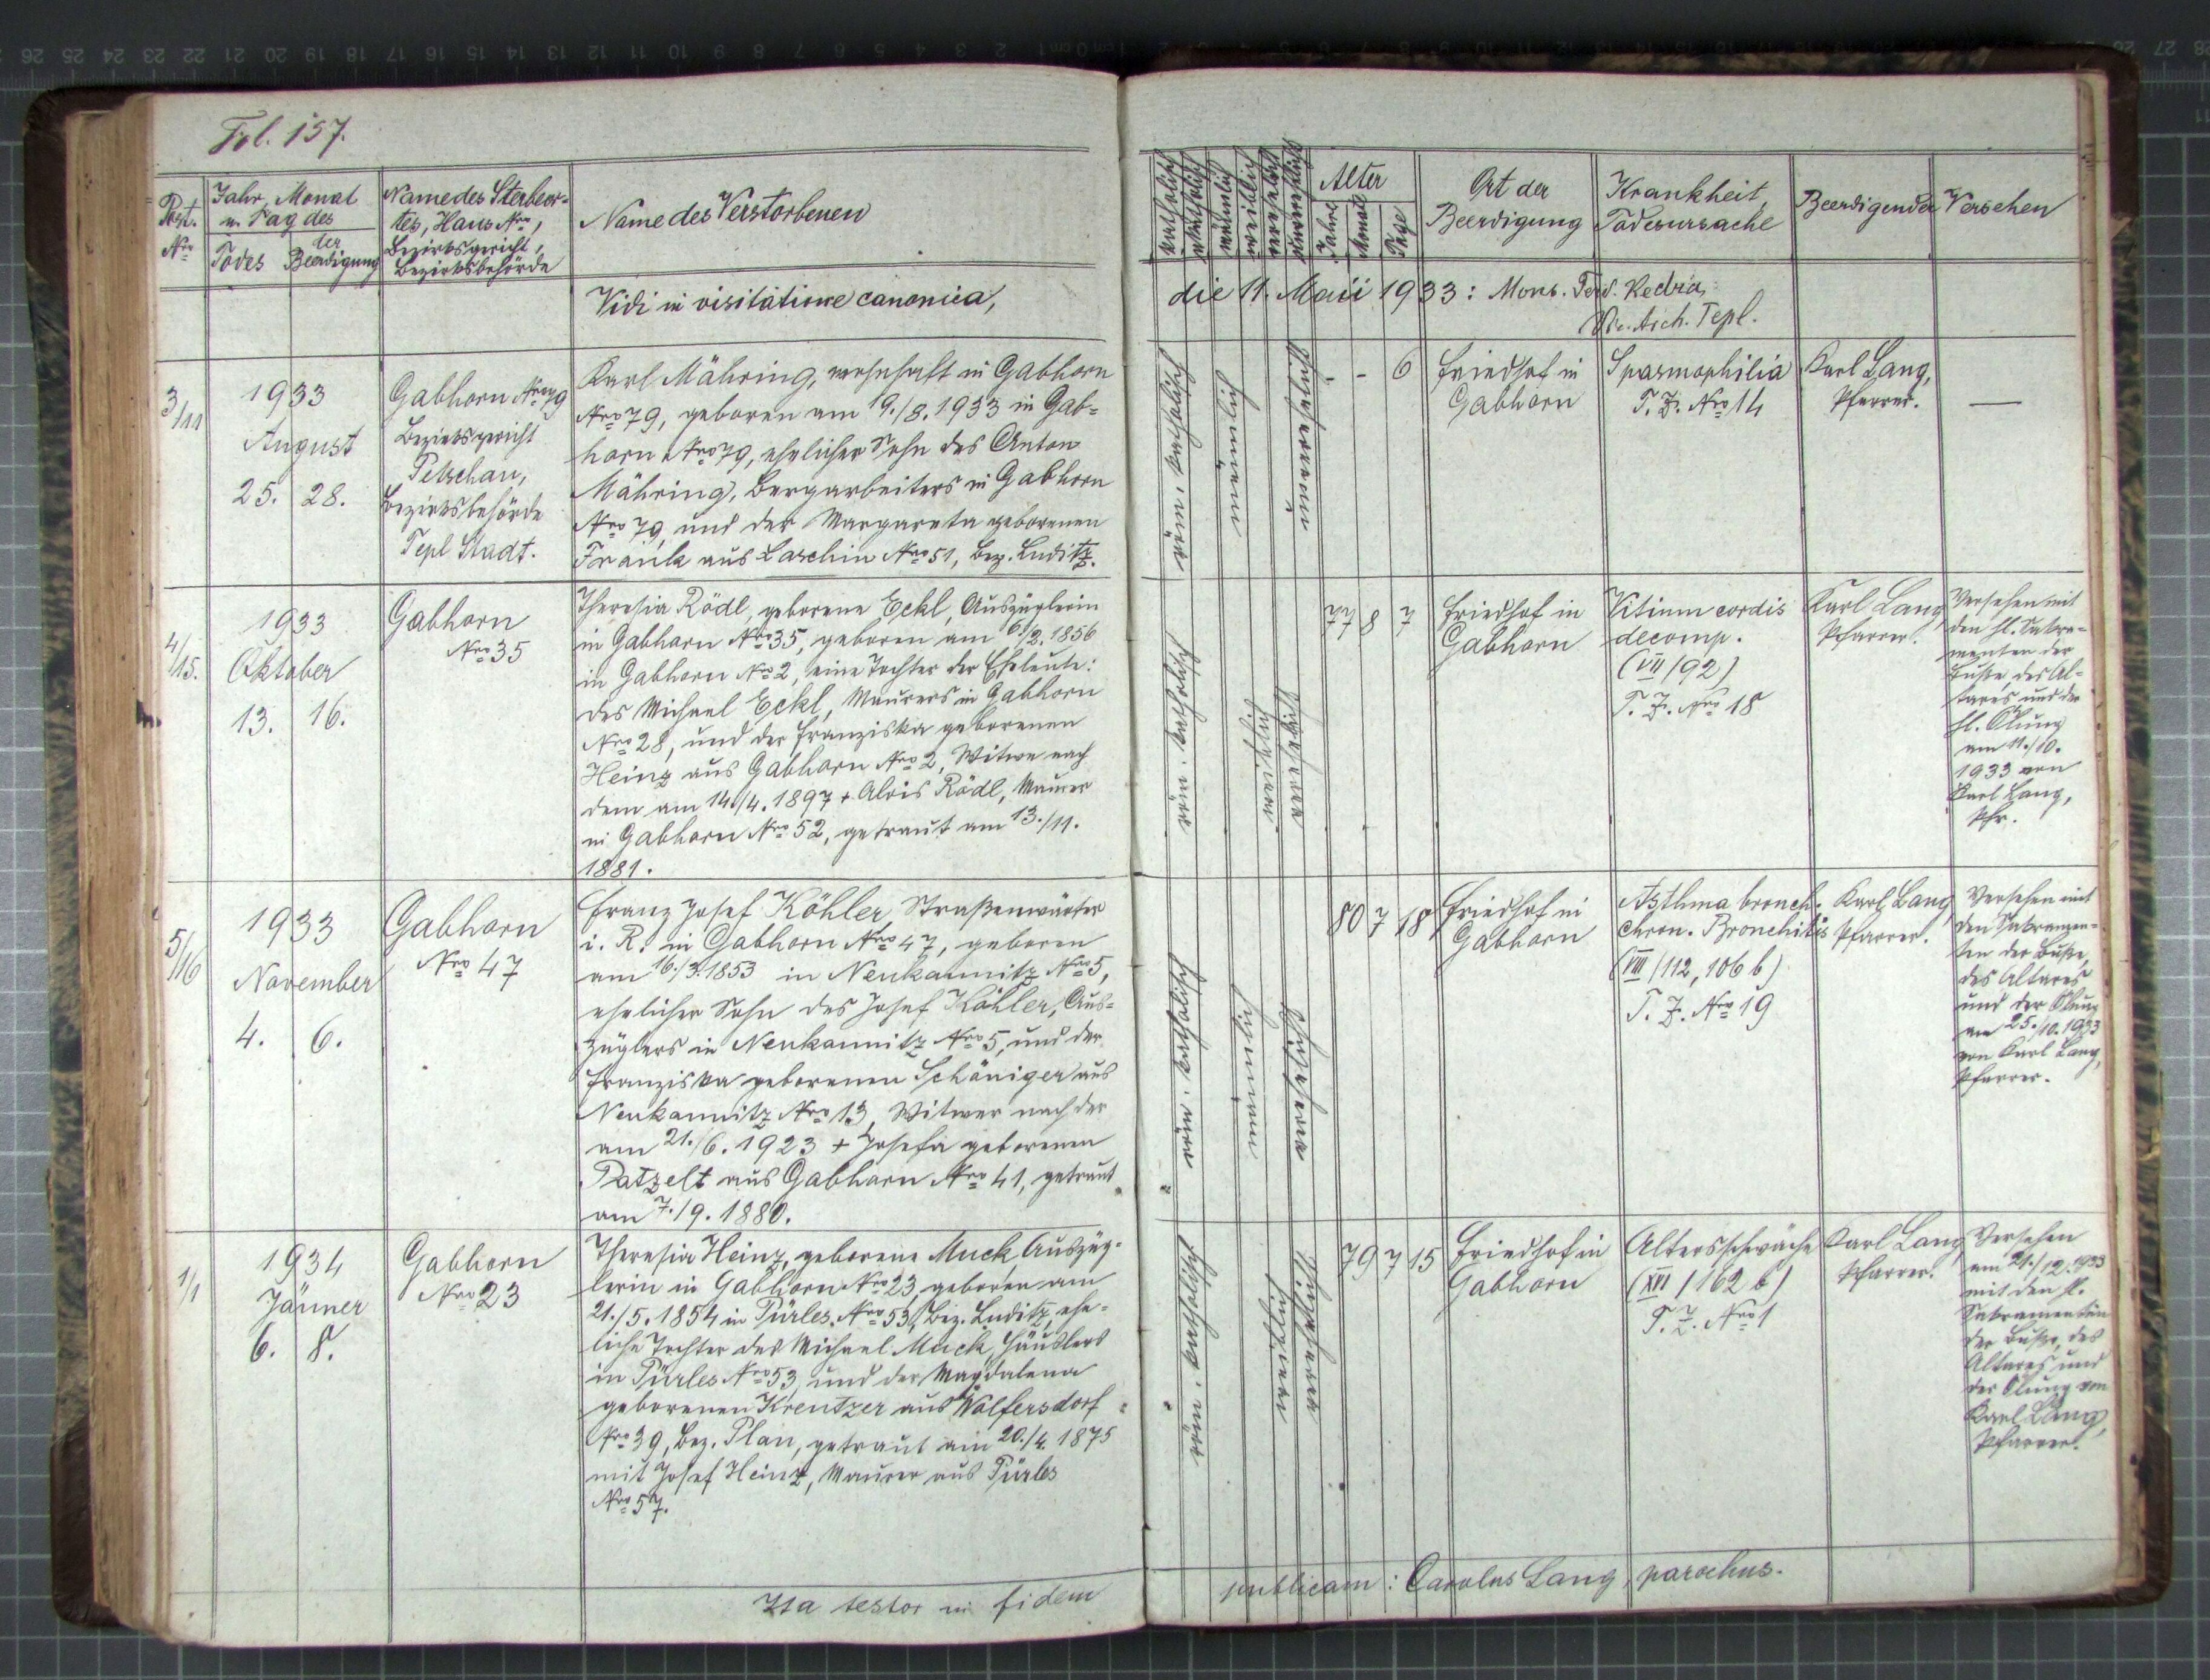 Fol. 157.
Post. Nro
Jahr, Monat u. Tag des
Todes
der Beerdigung
Name des Sterbeor-
tes, Haus Nro,
Bezirksgericht,
Bezirksbehörde
Name des Verstorbenen
katholisch
akatholisch
männlich
weiblich
ehelich
unehelich
Alter
Jahre
Monate
Tage
Ort der
Beerdigung
Krankheit,
Todesursache
Beerdigender
Versehen
Vidi in visitatione canonica, die 11. Maii 1933: Mons. Ferd. Kedra,
Vic. Arch. Tepl.
3/11
1933
August
25. 28.
Gabhorn Nro 79
Bezirksgericht
Petschau,
Bezirksbehörde
Tepl Stadt.
Karl Mähring, wohnhaft in Gabhorn
Nro 79, geboren am 19./8. 1933 in Gab-
horn Nro 79, ehelicher Sohn des Anton
Mähring, Bergarbeiters in Gabhorn
Nro 79, und der Margareta geborenen
Frank aus Laschin Nro 51, Bez. Luditz.
röm. katholisch
männlich
unverehelicht
- - 6
Friedhof in
Gabhorn
Spasmophilia
T. Z. Nro 14
Karl Lang,
Pfarrer.
—
4/15.
1933
Oktober
13. 16.
Gabhorn
Nro 35
Theresia Rödl, geborene Eckl, Auszüglerin
in Gabhorn Nro 35, geboren am 6./2. 1856
in Gabhorn Nro 2, eine Tochter der Eheleute:
des Michael Eckl, Maurers in Gabhorn
Nro 28, und der Franziska geborenen
Heinz aus Gabhorn Nro 2, Witwe nach
dem am 14./4. 1897 + Alois Rödl, Maurer
in Gabhorn Nro 52, getraut am 13./11.
1881.
röm. katholisch
weiblich
verehelicht
77 8 7
Friedhof in
Gabhorn
Vitium cordis
decomp.
(VII/92)
T. Z. Nro 18
Karl Lang,
Pfarrer.
Versehen mit
den hl. Sakra-
menten der
Buße, des Al-
tares und der
hl. Ölung
am 11./10.
1933 von
Karl Lang,
Pfr.
5/16
1933
November
4. 6.
Gabhorn
Nro 47
Franz Josef Köhler, Straßenwärter
i. R. in Gabhorn Nro 47, geboren
am 16./3. 1853 in Neukaunitz Nro 5,
ehelicher Sohn des Josef Köhler, Aus-
züglers in Neukaunitz Nro 5, und der
Franziska geborenen Schöniger aus
Neukaunitz Nro 13, Witwer nach der
am 21./6. 1923 + Josefa geborenen
Patzelt aus Gabhorn Nro 41, getraut
am 7./9. 1880.
röm. katholisch
männlich
verehelicht
80 7 18
Friedhof in
Gabhorn
Asthma bronch.
Chron. Bronchitis
(VIII/112, 106 b)
T. Z. Nro 19
Karl Lang,
Pfarrer.
Versehen mit
den Sakramen-
ten der Buße,
des Altares
und der Ölung
am 25./10. 1933
von Karl Lang,
Pfarrer.
1/1
1934
Jänner
6. 8.
Gabhorn
Nro 23
Theresia Heinz, geborene Muck, Auszüg-
lerin in Gabhorn Nro 23, geboren am
21./5. 1854 in Pürles Nro 53, Bez. Luditz, ehe-
liche Tochter des Michael Muck, Häuslers
in Pürles Nro 53, und der Magdalena
geborenen Kreutzer aus Wolfersdorf
Nro 39, Bez. Plan, getraut am 20./4. 1875
mit Josef Heinz, Maurer aus Pürles
Nro 57.
röm. katholisch
weiblich
verehelicht
79 7 15
Friedhof in
Gabhorn
Altersschwäche
(XVI/162 b)
T. Z. Nro 1
Karl Lang,
Pfarrer.
Versehen
am 21./12. 1933
mit den hl.
Sakramenten
der Buße, des
Altares und
der Ölung von
Karl Lang,
Pfarrer.
Ita testor in fidem publicam: Carolus Lang, parochus.